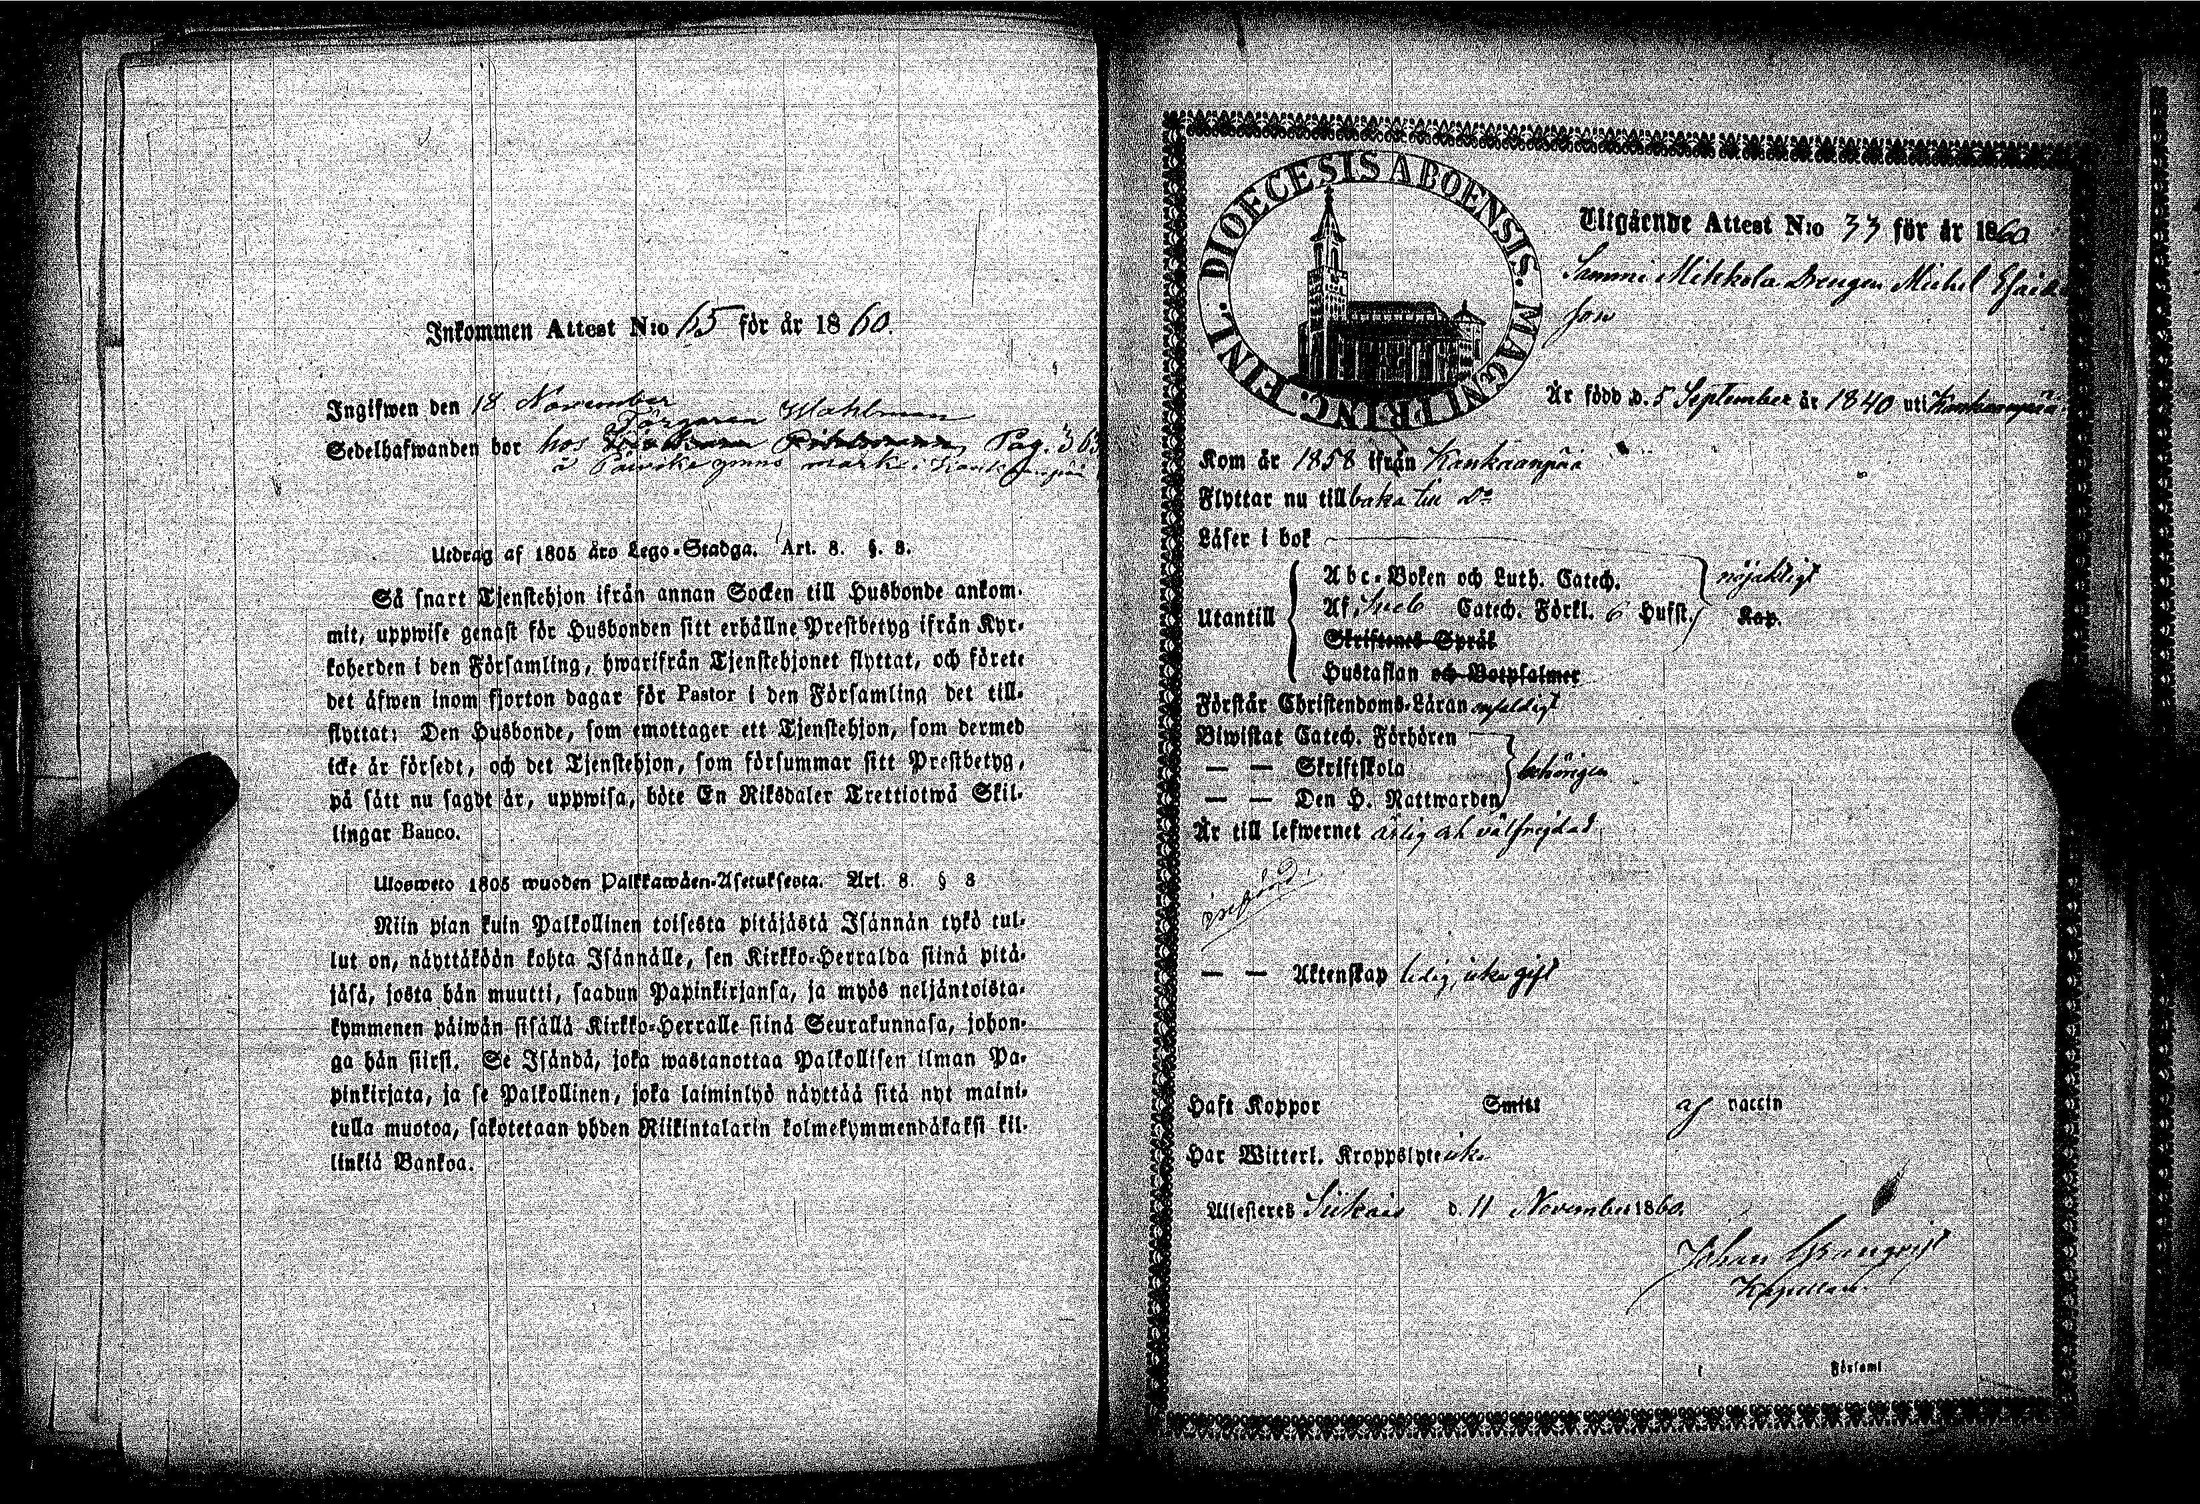 Inkommen Attest N:o 65 för år 1860.
Ingifwen den 18 November
Färgaren Wahlman
Sedelhafwanden bor hos Pag. 363
i Kankaanpää
Utdrag af 1805 års Lego-Stadga. Art. 8. §. 8.
Så snart Tjenstehjon ifrån annan Socken till Husbonde ankom-
mit, uppwise genast för Husbonden sitt erhållne Prestbetyg ifrån Kyr-
koherden i den Församling, hwarifrån Tjenstehjonet flyttat, och förete
det äfwen inom fjorton dagar för Pastor i den Församling det till-
flyttat: Den Husbonde, som emottager ett Tjenstehjon, som dermed
icke är försedt, och det Tjenstehjon, som försummar sitt Prestbetyg,
på sätt nu sagdt är, uppwisa, böte En Riksdaler Trettiotwå Skil-
lingar Banco.
Ulosweto 1805 wuoden Palkkawäen-Asetuksesta. Art. 8. § 8
Niin pian kuin Palkollinen toisesta pitäjästä Isännän tykö tul-
lut on, näyttäköön kohta Isännälle, sen Kirkko-Herralda siinä pitä-
jäsä, josta hän muutti, saadun Papinkirjansa, ja myös neljäntoista-
kymmenen päiwän sisällä Kirkko-Herralle siinä Seurakunnasa, johon-
ga hän siirsi. Se Isändä, joka wastanottaa Palkollisen ilman Pa-
pinkirjata, ja se Palkollinen, joka laiminlyö näyttää sitä nyt maini-
tulla muotoa, sakotetaan yhden Riikintalarin kolmekymmendäkaksi kil-
linkiä Bankoa.
DIOECESIS ABOENSIS. MAGNI PRINC. FINL.
Utgående Attest N:o 33 för år 1860
Sammi Mikkola Drengen Michel Esaias
son
Är född d. 5 September år 1840 uti Kankaanpää
Kom år 1858 ifrån Kankaanpää
Flyttar nu tillbaka till Do
Läser i bok
Utantill
Abc-Boken och Luth. Catech. nöjaktigt
Af Sveb Catech. Förkl. 6 Hufst. Kap.
Skriftenes Språk
Hustaflan och Botpsalmer
Förstår Christendoms-Läran enfaldigt
Biwistat Catech. Förhören
— — Skriftskola behörigen
— — Den H. Nattwarden
Är till lefwernet ärlig och välfrejdad
— — Äktenskap ledig, icke gift
Haft Koppor Smitt af vaccin
Har Witterl. Kroppslyte icke
Attesteres Siikais d. 11 November 1860.
Johan Granqvist
Kapellan
Församl